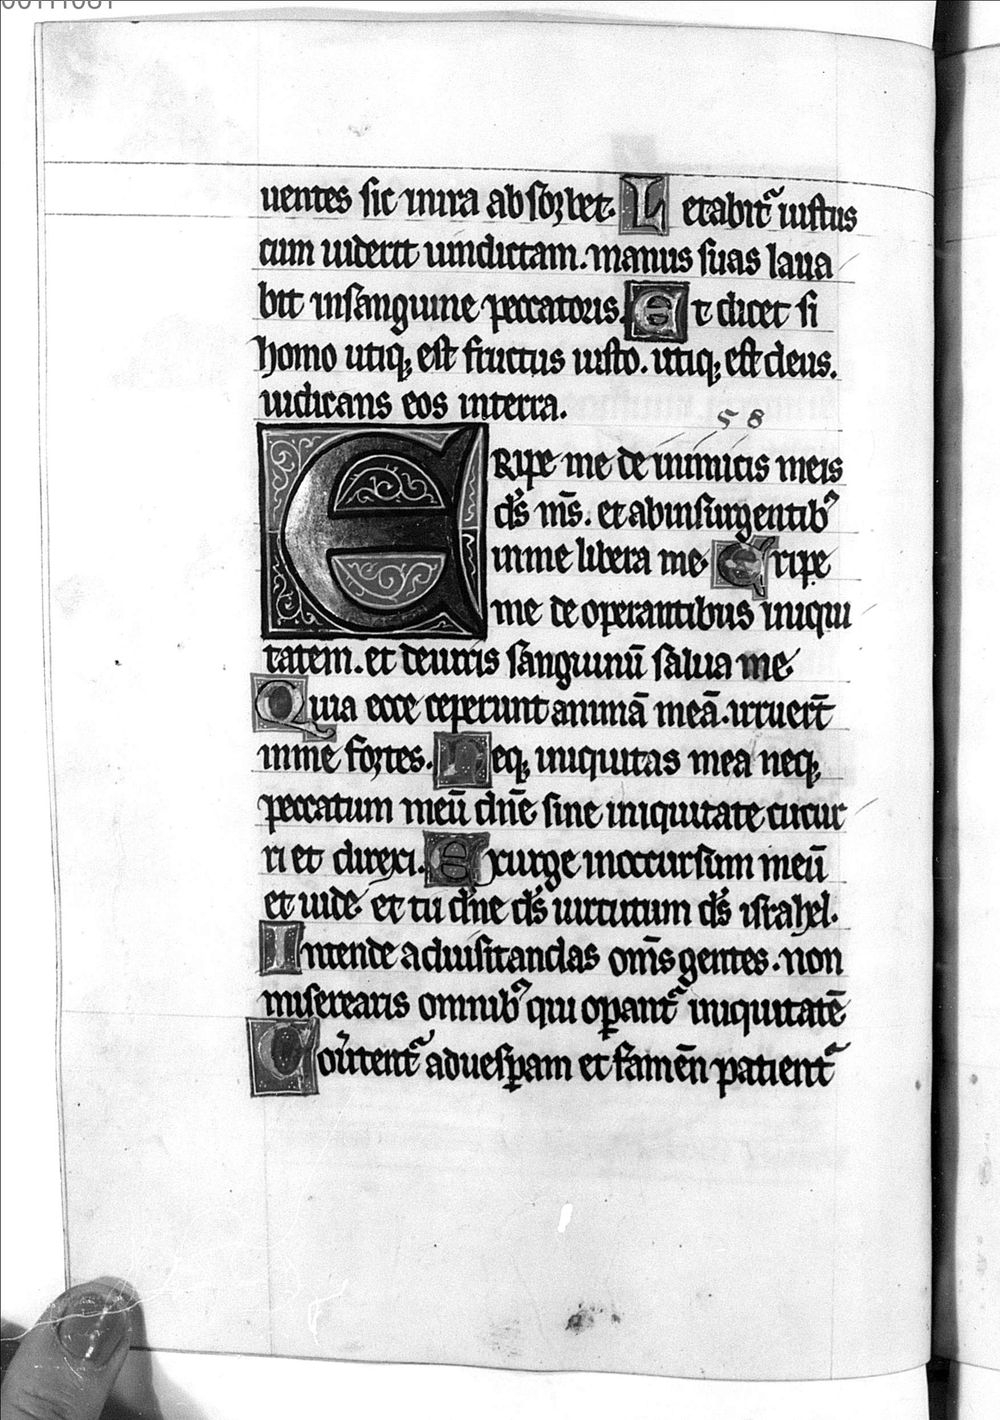 00111081
uentes sic in ira absorbet. Letabit̃ iustus
cum uiderit uindictam. manus suas laua
bit insanguine peccatoris. Et dicet si
homo utiq; est fructus iusto. utiq; est deus.
iudicans eos interra.
58
ERipe me de inimicis meis
ds̃ ms̃. et abinsurgentibꝰ
inme libera me. Eripe
me de operantibus iniqui
tatem. et deuiris sanguinū salua me
Quia ecce ceperunt animā meā. irruert̄
inme fortes. Neq; iniquitas mea neq;
peccatum meū dn̄e sine iniquitate cucur
ri et direxi. Exurge inoccursum meū
et uide. et tu dn̄e ds̃ uirtutum ds̃ israhel.
Intende aduisitandas om̄s gentes. non
miserearis omnibꝰ qui oꝑant̃ iniquitatē
Couˀtent̃ aduesꝑam et famen̄ patient̃